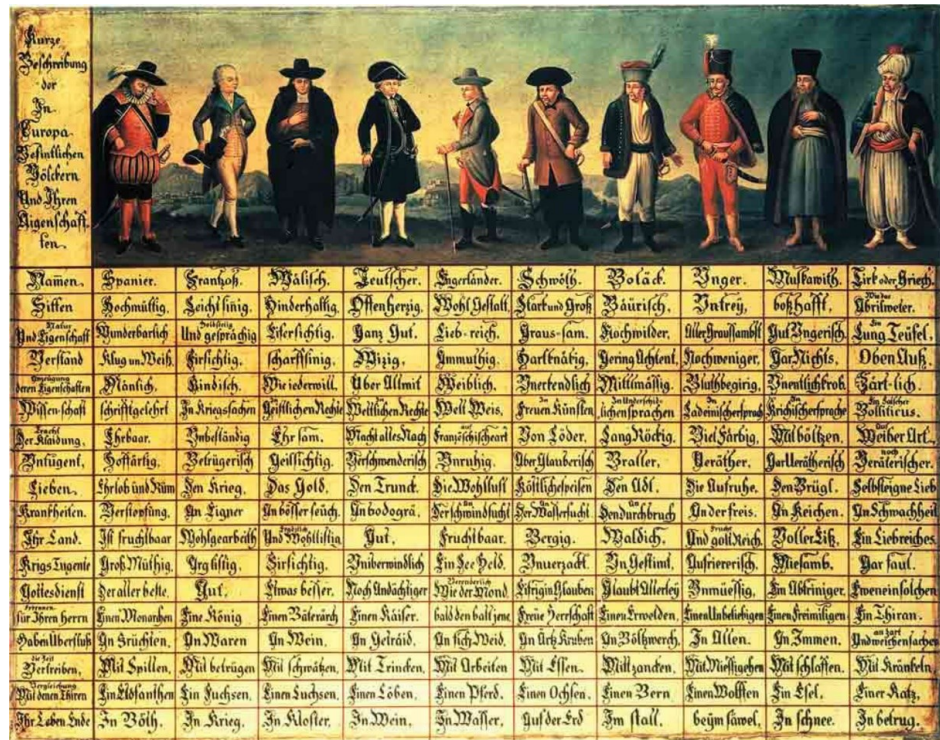 Kurze
Beschreibung
der
In
Europa
Befintlichen
Völckern
Und Ihren
Aigenschaff-
ten.
Namen. Spanier. Frantzoß. Wälisch. Teutscher. Engerländer. Schwöth. Boläck. Unger. Muskawith. Tirk oder Griech.
Sitten Hochmüttig. Leicht sinig. Hinderhaltig. Offenherzig. Wohl Gestalt. Stark und Groß Bäurisch. Untrey. boßhafft. Wie das Abrilweter.
Natur Und Eigenschaft Wunderbarlich Holdseelig Und gesprächig Eifersichtig. Ganz Gut. Lieb-reich. Graus-sam. Nochwilder. Aller Graussambst. Gut Ungerisch. Ein Lung Teüfel.
Verstand Klug un Weiß. Firsichtig. scharffsinig. Wizig. Ammuthig. Hartknäkig. Gering Achtent. Nochweniger. Gar Nichts. Oben Auß.
deren Eigenschaften Mänlich. Kindisch. Wie iederwill. Über Allmit Weiblich. Unerkendlich Mittlmässig. Bluthbegirig. Unentlich Krob. Zärt-lich.
Wissenschaft schrifftgelehrt In Kriegssachen Geistlichen Rechte Weltlichen Rechte Welt Weis. In Freuen Künsten In Underschidlichen sprachen In Ladeinischersprach In Krichischersprache Ein Falscher Bolliticus.
Tracht Der Klaidung. Ehrbaar. Unbeständig Ehr sam. Macht alles Nach auf Französischeart Von Löder. Lang Röckig. Viel Färbig. Mit böltzen. Auf Weiber Art.
Untugent. Hoffärtig. Betrügerisch Geilsichtig. Verschwenderisch Unruhig. Über Glauberisch Braller. Veräther. Gar Verätherisch noch Verätterischer.
Lieben. Ehrlob und Rüm Den Krieg. Das Gold. Den Trunck. Die Wohllust Köstliche speisen Den Adl. Die Aufruhe. Den Brügl. Selbsteigne Lieb
Krankheiten. Verstopfung. An Eigner An bösser seüch. An bodogrä. An Der schwindsucht An Der Wassersucht An Den durchbruch An der freis. An Keichen. An Schwachheit
Ihr Land. Ist fruchtbaar Wohlgearbeith Und Wohllistig Gut. Fruchtbaar. Bergig. Waldich. Frucht Und goltReich. Voller Eiß. Ein Liebreiches.
Krigs Tugente Groß Müthig. Arg listig. Firsichtig. Uniberwindlich Ein See Held. Unverzackt. Un Gestimt. Aufriererisch. Miesamb. Gar faul.
Gottesdienst Der aller beste. Gut. Etwas besser. Noch Andächtiger Veränderlich Wie der Mond Eifrig in Glauben Glaubt Allerley Unmüessig. Ein Abtriniger. Eweneinsolchen
Erkennen für Ihren Herrn Einen Monarchen Eine König Einen Bäterärch Einen Käiser. bald den balt jene Freüe Herrschaft Einen Erwelden. Einen Unbeliebigen Einen Freimiligen Ein Thiran.
Haben Überfluß An Früchten. An Waren An Wein. An Geträid. An fich Weid. An Ärtz Kruben An Böltzwerch. In Allen. An Immen. an zart Und weichen sachen
Die Zeit Vertreiben. Mit Spillen. Mit betrügen Mit schwätzen. Mit Trincken. Mit Arbeiten Mit Essen. Mit zancken. Mit Miessigehen Mit schlaffen. Mit Kränkeln.
Vergleichung Mit denen Thiren Ein Elofanthen Ein Fuchsen. Einen Luchsen. Einen Löben. Einen Pferd. Einen Ochsen. Einen Bern Einen Wolffen Ein Esel. Einer Katz.
Ihr Leben Ende In Böth. In Krieg. In Kloster. In Wein. In Wasser. Auf der Erd Im stall. beÿm säwel. In schnee. In betrug.